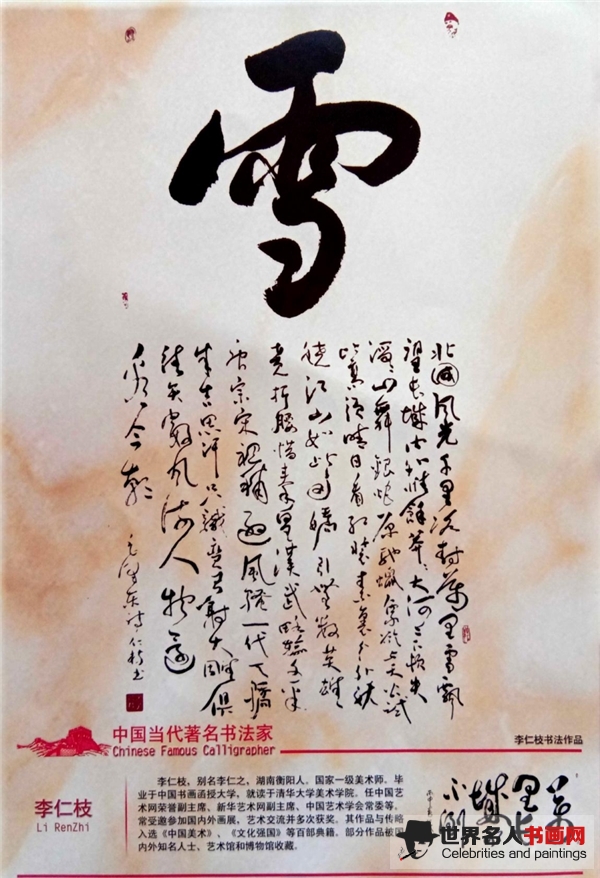 雪
北國风光千里冰封萬里雪飘
望长城内外惟餘莽莽大河上下顿失
滔滔山舞銀蛇原驰蠟象欲与天公试
比高须晴日看红装素裹分外妖
娆江山如此多嬌引無數英雄
竞折腰惜秦皇漢武略输文采
唐宗宋祖稍遜风骚一代天骄
成吉思汗只識弯弓射大雕俱
往矣數风流人物還
看今朝
毛泽东诗仁枝书
中国当代著名书法家
Chinese Famous Calligrapher
李仁枝书法作品
李仁枝
Li RenZhi
李仁枝，别名李仁之，湖南衡阳人。国家一级美术师。毕
业于中国书画函授大学，就读于清华大学美术学院。任中国艺
术网荣誉副主席、新华艺术网副主席、中国艺术学会常委等。
常受邀参加国内外画展、艺术交流并多次获奖。其作品与传略
入选《中国美术》、《文化强国》等百部典籍。部分作品被国
内外知名人士、艺术馆和博物馆收藏。
世界名人书画网
Celebrities and paintings